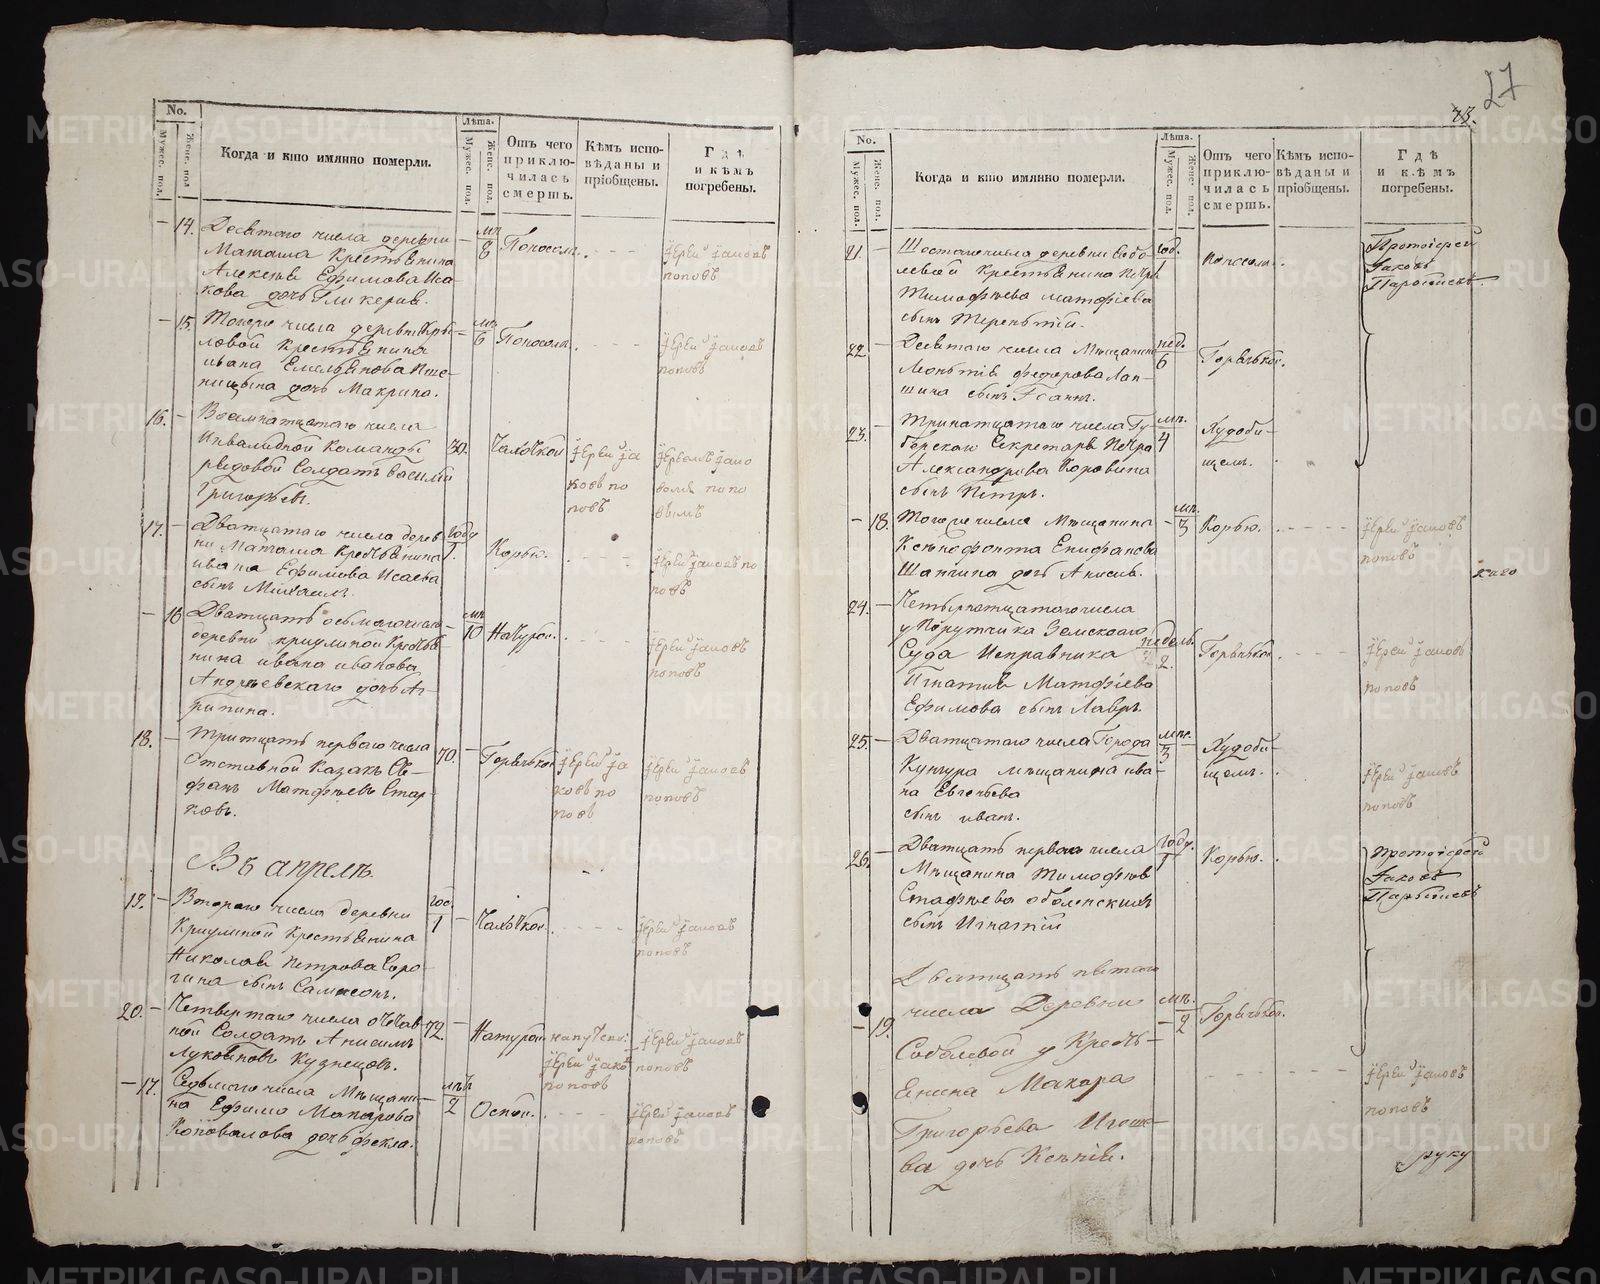 27
73.
No.
Мужес. пол.
Женс. пол
Когда и кто имянно померли.
Лѣта.
Мужес. пол.
Женс. пол.
Отъ чего приключилась смерть.
Кѣмъ исповѣданы и пріобщены.
Гдѣ и кѣмъ погребены.
14. Десятаго числа деревни
Маташа крестьянина
Алексѣя Ефимова Иса-
кова дочь Гликерия.
мц. 8
Поносом.
Іерей Іаковъ
поповъ
15. Тогоже числа деревни Кры-
ловой крестьянина
ивана Емельянова Пше-
ницына дочь Макрина.
мц. 6
Поносом.
Іерей Іаковъ
поповъ
16. Восемнатцатаго числа
Инвалидной Команды
рядовой Солдатъ василий
Григорьевъ.
30.
Чахоткой
Іерей Іа
ковъ по
повъ
Іереемъ Іако
вомъ попо
вымъ
17. Дватцатаго числа дерев-
ни Маташа крестьянина
ивана Ефимова Исаева
сынъ Михаилъ.
году 1.
Корью.
Іерей Іаковъ по
повъ
16 Дватцать осьмаго числа
деревни криулиной кресть
нина ивана иванова
Андреевскаго дочь Аг-
рипина.
мц 10
Натурой.
Іерей Іаковъ
поповъ
18. Тритцать перваго числа
Отставной Казакъ Се-
фанъ Матфѣевъ Стар-
ковъ.
70.
Горячкой
Іерей Іа
ковъ по
повъ
Іерей Іаковъ
поповъ
Въ апрелѣ.
19. Втораго числа деревни
Криулиной крестьянина
Николая Петрова Соро-
гина сынъ Самсонъ.
год. 1
Чахоткой.
Іерей Іаковъ
поповъ
20. Четвертаго числа отстав-
ной Солдатъ Анисимъ
Лукояновъ Кузнецовъ.
72.
Натурой
Іерей Іако
поповъ
Іерей Іаковъ
поповъ
17. Седьмаго числа Мѣщани-
на Ефима Макарова
Коновалова дочь Фекла.
мцъ 2
Оспой.
Іерей Іаковъ
поповъ
No.
Мужес. пол.
Женс. пол.
Когда и кто имянно померли.
Лѣта.
Мужес. пол.
Женс. пол.
Отъ чего приключилась смерть.
Кѣмъ исповѣданы и пріобщены.
Гдѣ и кѣмъ погребены.
21. Шестаго числа деревни Собо-
левой крестьянина Петра
Тимофѣева матфиева
сынъ Терентий.
год. 1
поносом.
Протоіерей
Іаковъ
22. Десятаго числа Мѣщанина
Леонтия федорова Лап-
шина сынъ Іоаннъ.
недѣ. 6
Горячкой.
23. Тринатцатаго числа Гу-
бернскаго Секретаря Петра
Александрова Коровина
сынъ Петръ.
мц. 4
Худоби-
щемъ.
18. Тогоже числа Мѣщанина
Ксенофонта Епифанова
Шапгина дочь Анисия.
мц. 3
Корью.
Іерей Іаковъ
поповъ
24. Четырнатцатаго числа
у Порутчика Земскаго
Суда Исправника
Игнатия Матфиева
Ефимова сынъ Лавръ.
недель. 2.
Горячкой.
Іерей Іаковъ
поповъ
25. Дватцатаго числа Города
Кунгура мѣщанина ива-
на Евгеньева
сынъ иванъ.
мце. 3
Худоби-
щемъ.
Іерей Іаковъ
поповъ
26. Дватцать перваго числа
Мѣщанина Тимофѣя
Стафѣева оболенскихъ
сынъ Игнатий
году. 1
Корью.
Протоіерей
Іаковъ
19. Дватцать пятаго
числа Деревни
Соболевой у Кресть-
янина Макара
Григорьева Игоше-
ва дочь Ксения.
мц. 2
Горячкой.
Іерей Іаковъ
поповъ
руку
METRIKI.GASO-URAL.RU